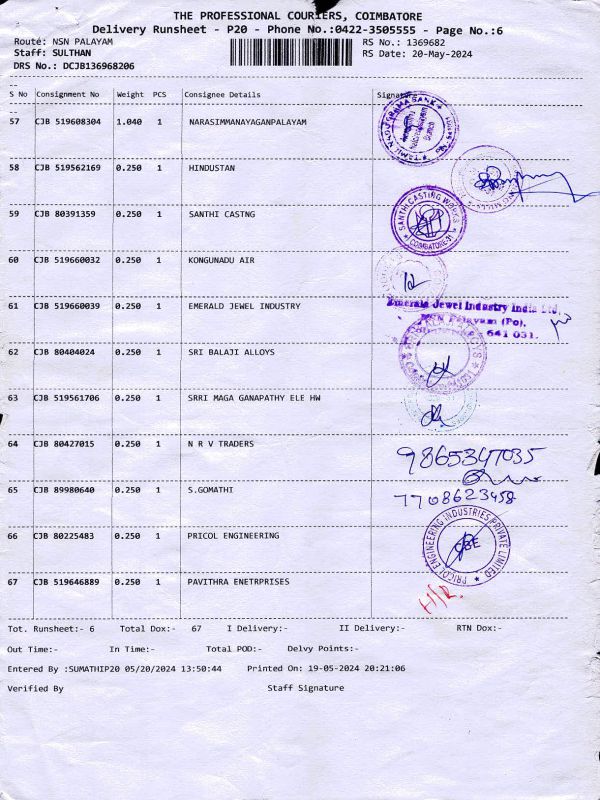 THE PROFESSIONAL COURIERS, COIMBATORE
Delivery Runsheet - P20 - Phone No.:0422-3505555 - Page No.:6
Route: NSN PALAYAM RS No.: 1369682
Staff: SULTHAN RS Date: 20-May-2024
DRS No.: DCJB136968206
S No Consignment No Weight PCS Consignee Details Signature
57 CJB 519608304 1.040 1 NARASIMMANAYAGANPALAYAM
58 CJB 519562169 0.250 1 HINDUSTAN
59 CJB 80391359 0.250 1 SANTHI CASTNG
SANTHI CASTING WORKS
COIMBATORE-31
60 CJB 519660032 0.250 1 KONGUNADU AIR
61 CJB 519660039 0.250 1 EMERALD JEWEL INDUSTRY
Emerald Jewel Industry India Ltd,
NSN Palayam (Po),
641 031.
62 CJB 80404024 0.250 1 SRI BALAJI ALLOYS
63 CJB 519561706 0.250 1 SRRI MAGA GANAPATHY ELE HW
64 CJB 80427015 0.250 1 N R V TRADERS
9865347035
65 CJB 89980640 0.250 1 S.GOMATHI
7708623458
66 CJB 80225483 0.250 1 PRICOL ENGINEERING
PRICOL ENGINEERING INDUSTRIES PRIVATE LIMITED
CBE
67 CJB 519646889 0.250 1 PAVITHRA ENETRPRISES
Tot. Runsheet:- 6 Total Dox:- 67 I Delivery:- II Delivery:- RTN Dox:-
Out Time:- In Time:- Total POD:- Delvy Points:-
Entered By :SUMATHIP20 05/20/2024 13:50:44 Printed On: 19-05-2024 20:21:06
Verified By Staff Signature